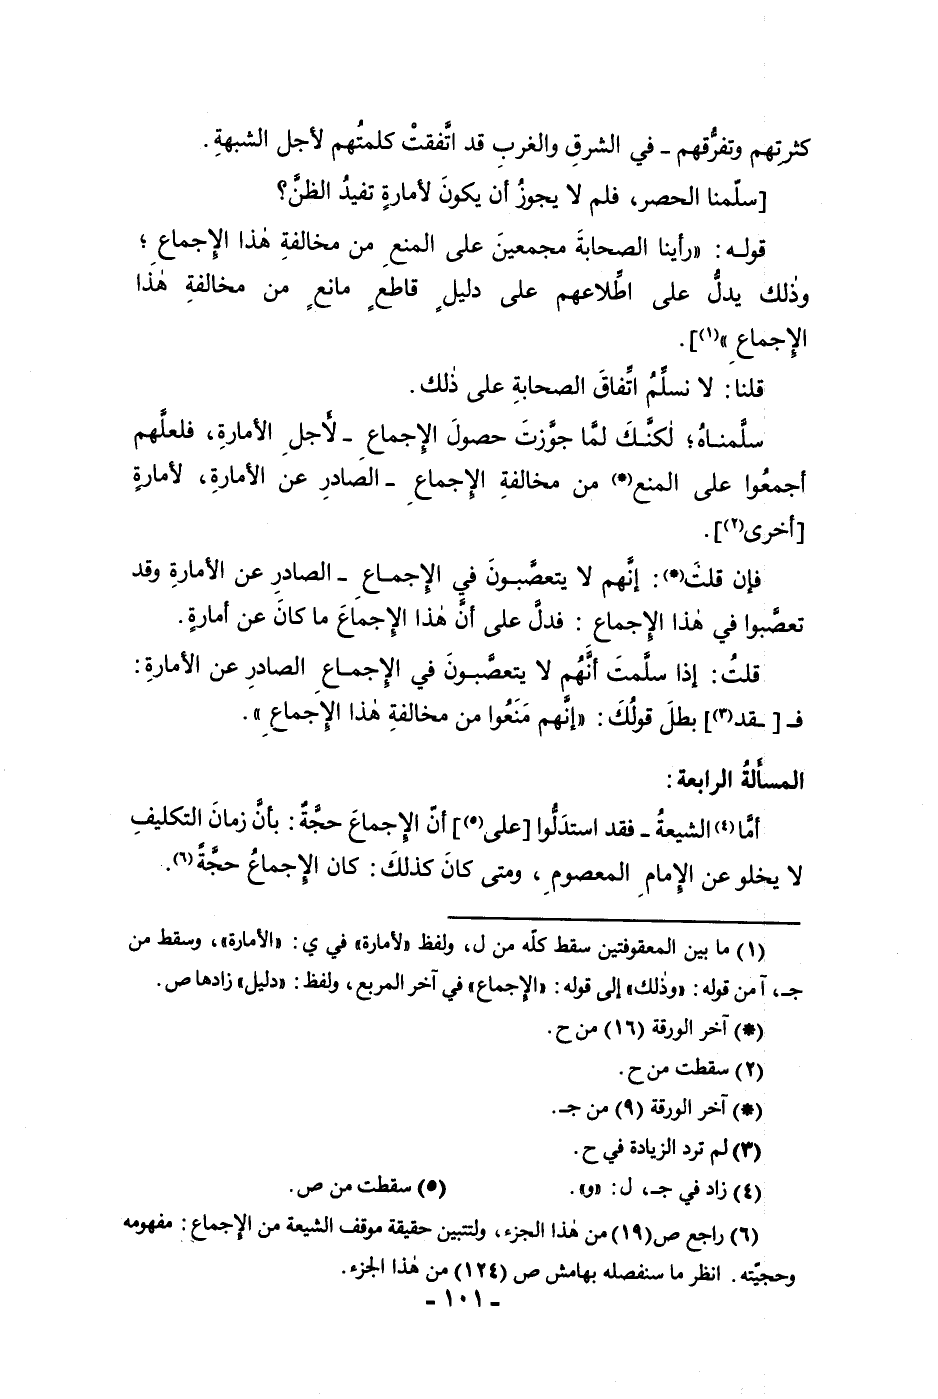 كثرتِهم وتفرُّقهم ـ في الشرقِ والغربِ قد اتَّفقتْ كلمتُهم لأجل الشبهةِ.
[سلّمنا الحصر، فلم لا يجوزُ أن يكونَ لأمارةٍ تفيدُ الظنَّ؟
قولـه: «رأينا الصحابةَ مجمعينَ على المنعِ من مخالفةِ هٰذا الإِجماعِ؛
وذٰلك يدلُّ على اطِّلاعهم على دليلٍ قاطعٍ مانعٍ من مخالفةِ هٰذا
الإِجماعِ»(١)].
قلنا: لا نسلِّمُ اتِّفاقَ الصحابةِ على ذٰلك.
سلَّمنـاهُ؛ لٰكنَّـكَ لمَّا جوَّزتَ حصولَ الإِجماعِ ـ لأَجلِ الأمارةِ، فلعلَّهم
أجمعُوا على المنع(*) من مخالفةِ الإِجماعِ ـ الصادرِ عن الأمارةِ، لأمارةٍ
[أخرى(٢)].
فإن قلتَ(*): إنَّهم لا يتعصَّبـونَ في الإِجمـاعِ ـ الصادرِ عن الأمارةِ وقد
تعصَّبوا في هٰذا الإِجماعِ: فدلَّ على أنَّ هٰذا الإِجماعَ ما كانَ عن أمارةٍ.
قلتُ: إذا سلَّمتَ أنَّهُم لا يتعصَّبـونَ في الإِجمـاعِ الصادرِ عن الأمارةِ:
فـ [ـقد(٣)] بطلَ قولُكَ: «إنَّهم مَنَعُوا من مخالفةِ هٰذا الإِجماعِ».
المسألةُ الرابعة:
أمَّا(٤) الشيعةُ ـ فقد استدَلُّوا [على(٥)] أنّ الإِجماعَ حجَّةٌ: بأنَّ زمانَ التكليفِ
لا يخلو عن الإِمامِ المعصومِ، ومتى كانَ كذلكَ: كان الإِجماعُ حجَّةً(٦).
(١) ما بين المعقوفتين سقط كلّه من ل، ولفظ «لأمارة» في ي: «الأمارة»، وسقط من
جـ، آ من قوله: «وذٰلك» إلى قوله: «الإِجماع» في آخر المربع، ولفظ: «دليل» زادها ص.
(*) آخر الورقة (١٦) من ح.
(٢) سقطت من ح.
(*) آخر الورقة (٩) من جـ.
(٣) لم ترد الزيادة في ح.
(٤) زاد في جـ، ل: «و». (٥) سقطت من ص.
(٦) راجع ص(١٩) من هٰذا الجزء، ولتتبين حقيقة موقف الشيعة من الإِجماع: مفهومه
وحجيّته. انظر ما سنفصله بهامش ص (١٢٤) من هٰذا الجزء.
ـ ١٠١ ـ